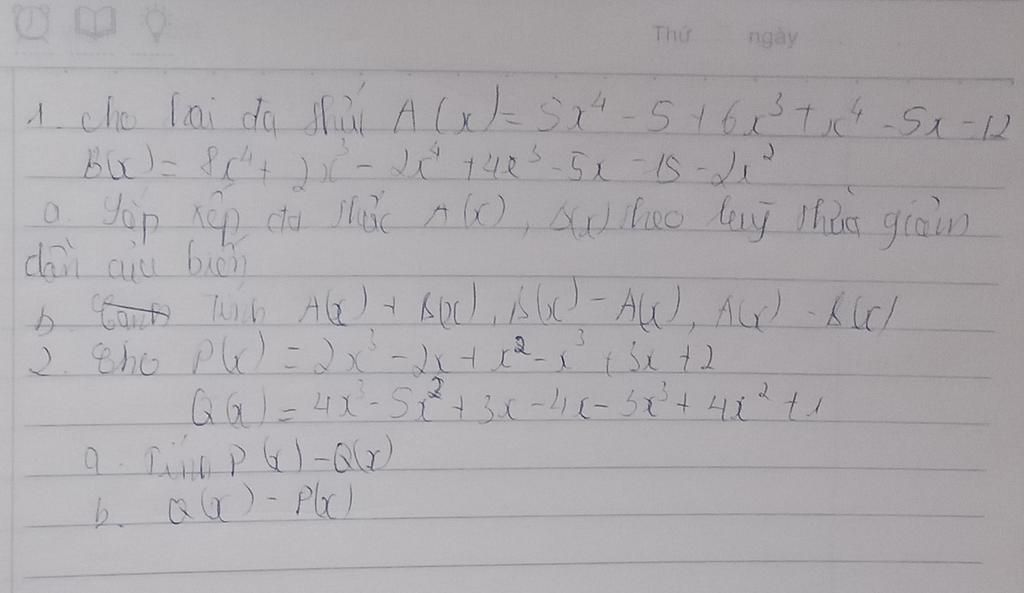 Thứ ngày
1. Cho hai đa thức A(x) = 5x⁴ - 5 + 6x³ + x⁴ - 5x - 12
B(x) = 8x⁴ + 2x³ - 2x⁴ + 4x³ - 5x - 15 - 2x²
a. Sắp xếp đa thức A(x), B(x) theo luỹ thừa giảm
dần của biến
b. Tính A(x) + B(x), B(x) - A(x), A(x) - B(x)
2. Cho P(x) = 2x³ - 2x + x² - x³ + 3x + 2
Q(x) = 4x³ - 5x² + 3x - 4x - 3x³ + 4x² + 1
a. Tính P(x) - Q(x)
b. Q(x) - P(x)